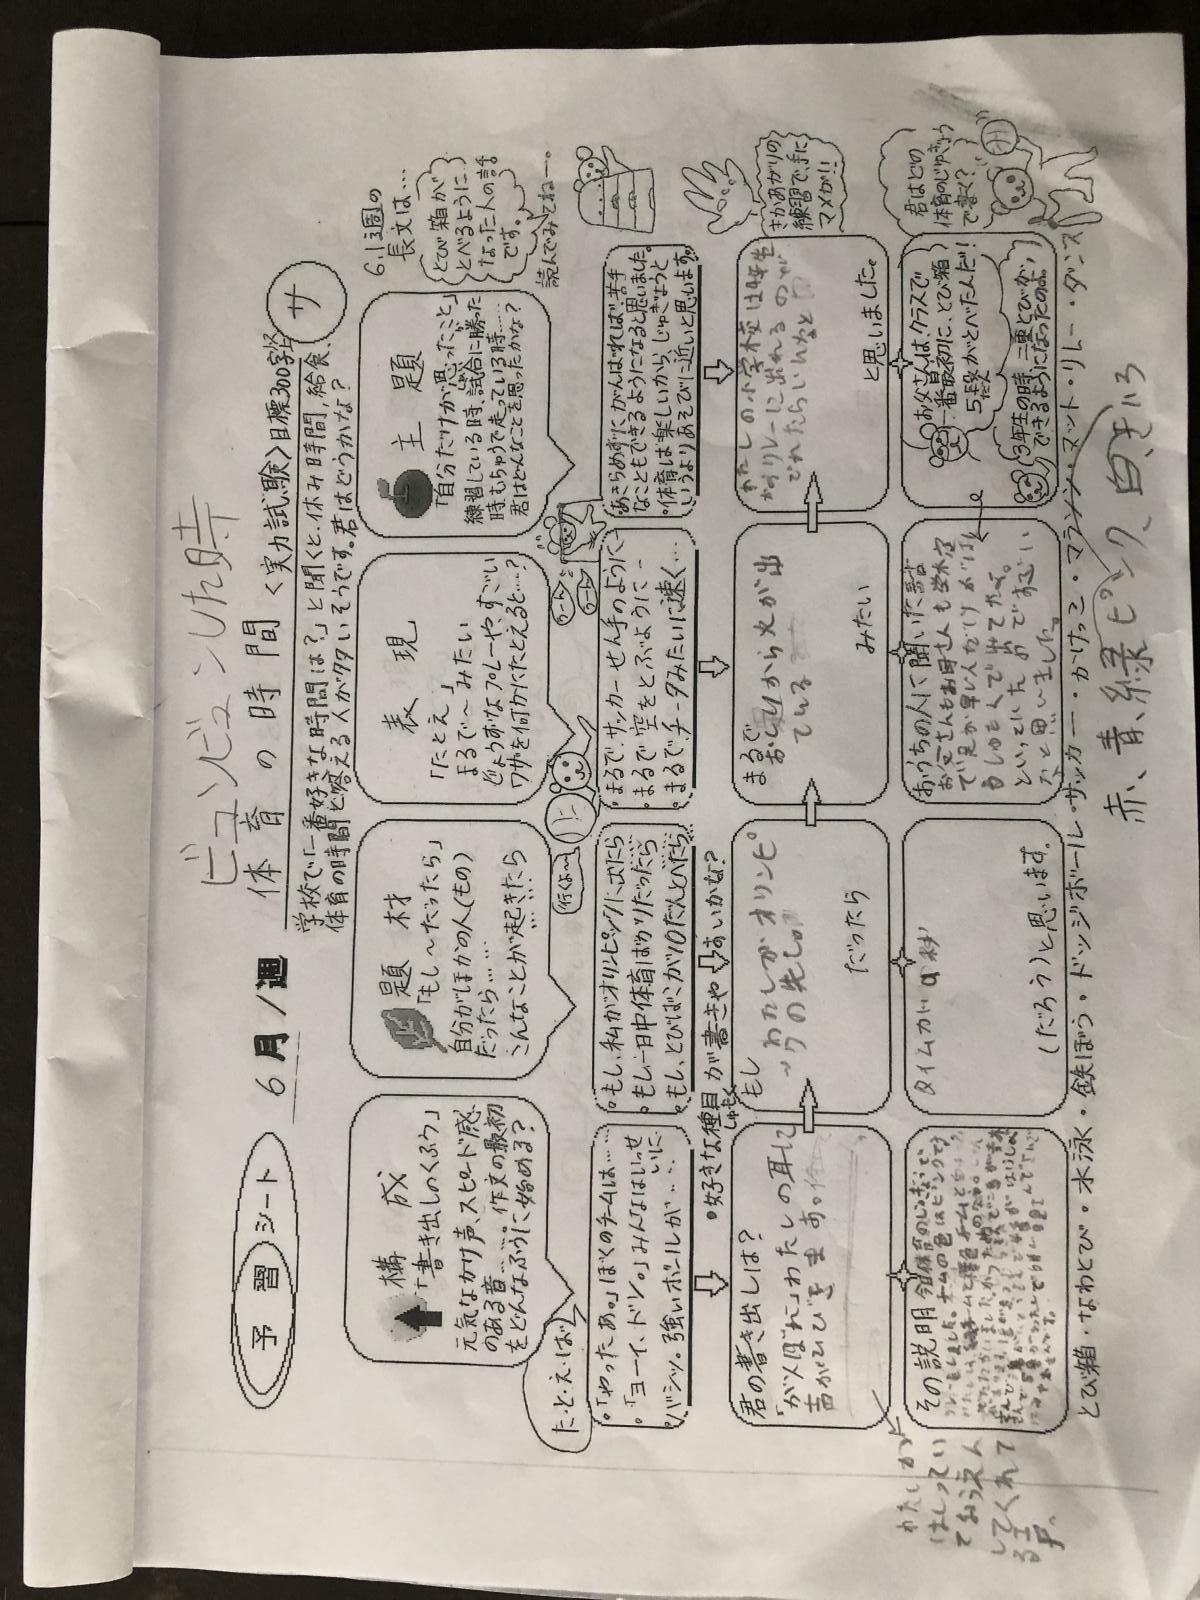 予習シート
6月1週
ビュンビュンした時
体育の時間
〈実力試験〉目標300字
サ
学校で「一番好きな時間は?」と聞くと、休み時間、給食、
体育の時間と答える人が多いそうです。君はどうかな?
6.1週の
長文は…
とび箱が
とべるように
なった二人の話
です。
読んでみてねー。
構成
「書き出しのくふう」
元気なかけ声、スピード感
のある音…。作文の最初
をどんなふうに始める?
題材
「もし〜だったら」
自分がほかの人(もの)
だったら……
こんなことが起きたら
……
行くよ〜
表現
「たとえ」
まるで〜みたい
じょうずなプレーや、すごい
ワザを何かにたとえると…?
主題
「自分だけが思ったこと」
練習している時、試合に勝った
時もちゅうで走っている時……
君はどんなことを思ったかな?
た・と・え・ば
・「やったあ。」ぼくのチームは……
・「ヨーイ、ドン。」みんなはいっせいに…
・バシッ。強いボールが……
・もし、私がオリンピックに出たら
・もし一日中体育ばかりだったら
・もし、とびばこが10だんとべたら
・まるで、サッカーせん手のように…
・まるで空をとぶように…
・まるで、チータみたいに速く…
・あきらめずにがんばれば、苦手
なこともできるようになると思いました。
・体育は楽しいから、じゅぎょうと
いうよりあそびに近いと思います。
・好きな種目が書きやすいかな?
さかあがりの
練習で、手に
マメが!!
君の書き出しは?
「がんばれ」わたしの耳に
声がひびきま
もし
わたしがオリンピ
ックの先しゅ
だったら
まるで
おしりから火が出
ている
みたい
わたしの小学校は4年生
からリレーに出れるので
でれたらいいなと
と思いました。
君はどの
体育のじゅぎょう
で書く?
その説明
タイムが 9秒
(だろう)と思います。
おうちの人に聞いた話
お父さんもお母さんも
で足が早い人
といっていたのですごい
なと思いました。
お父さんは、クラスで
一番最初に、とび箱
5段がとべたんだ!
3年生の時、二重とびが
できるようになったのよ。
わたしが
はしってい
ておうえん
してくれて
る声。
とび箱・なわとび・水泳・鉄ぼう・ドッジボール・サッカー・かけっこ・マラソン・マット・リレー・ダンス
赤、青、緑、ピンク、白、きいろ